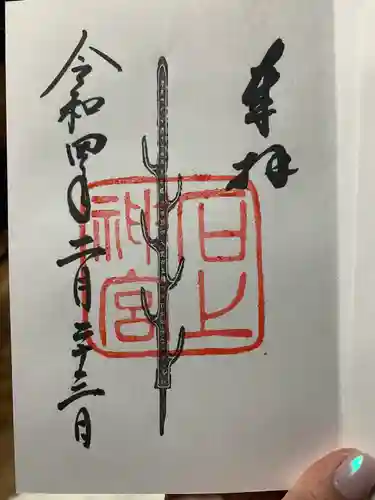 奉拝
石上
神宮
令和四年二月二十三日